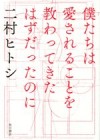 僕たちは
愛されることを
教わってきた
はずだったのに
二村ヒトシ